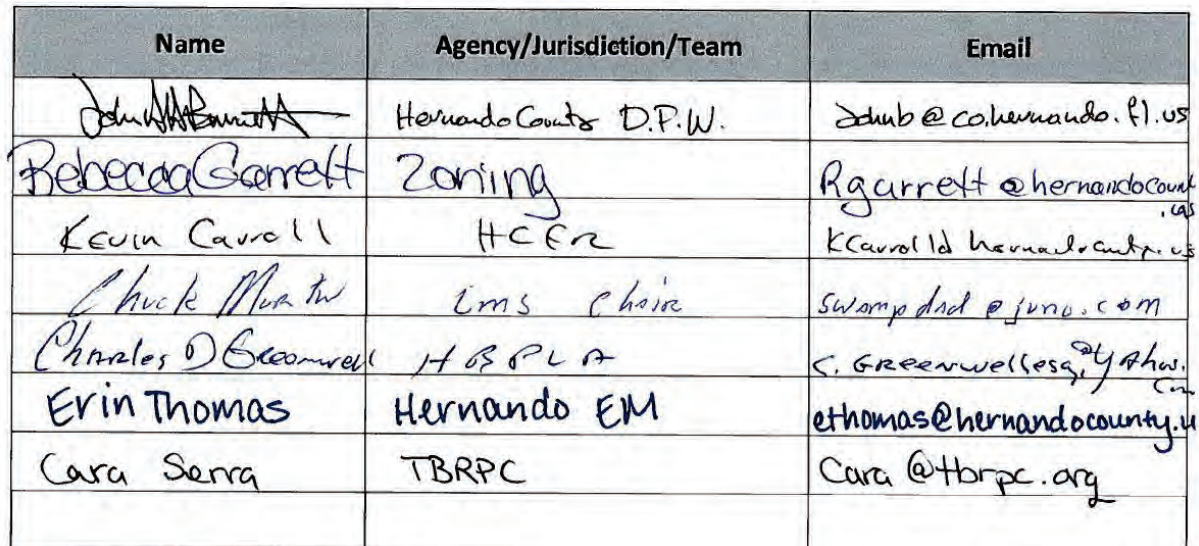 Name Agency/Jurisdiction/Team Email
John Burnett Hernando County D.P.W. Johnb@co.hernando.fl.us
Rebecca Garrett Zoning Rgarrett@hernandocount
.us
Kevin Carroll HCER KCarroll@
Chuck LMS Chair swampdad@juno.com
Charles D Greenwell HBPLA C.GREENwellesq@yahoo.
Com
Erin Thomas Hernando EM ethomas@hernandocounty.u
Cara Serra TBRPC Cara@tbrpc.org